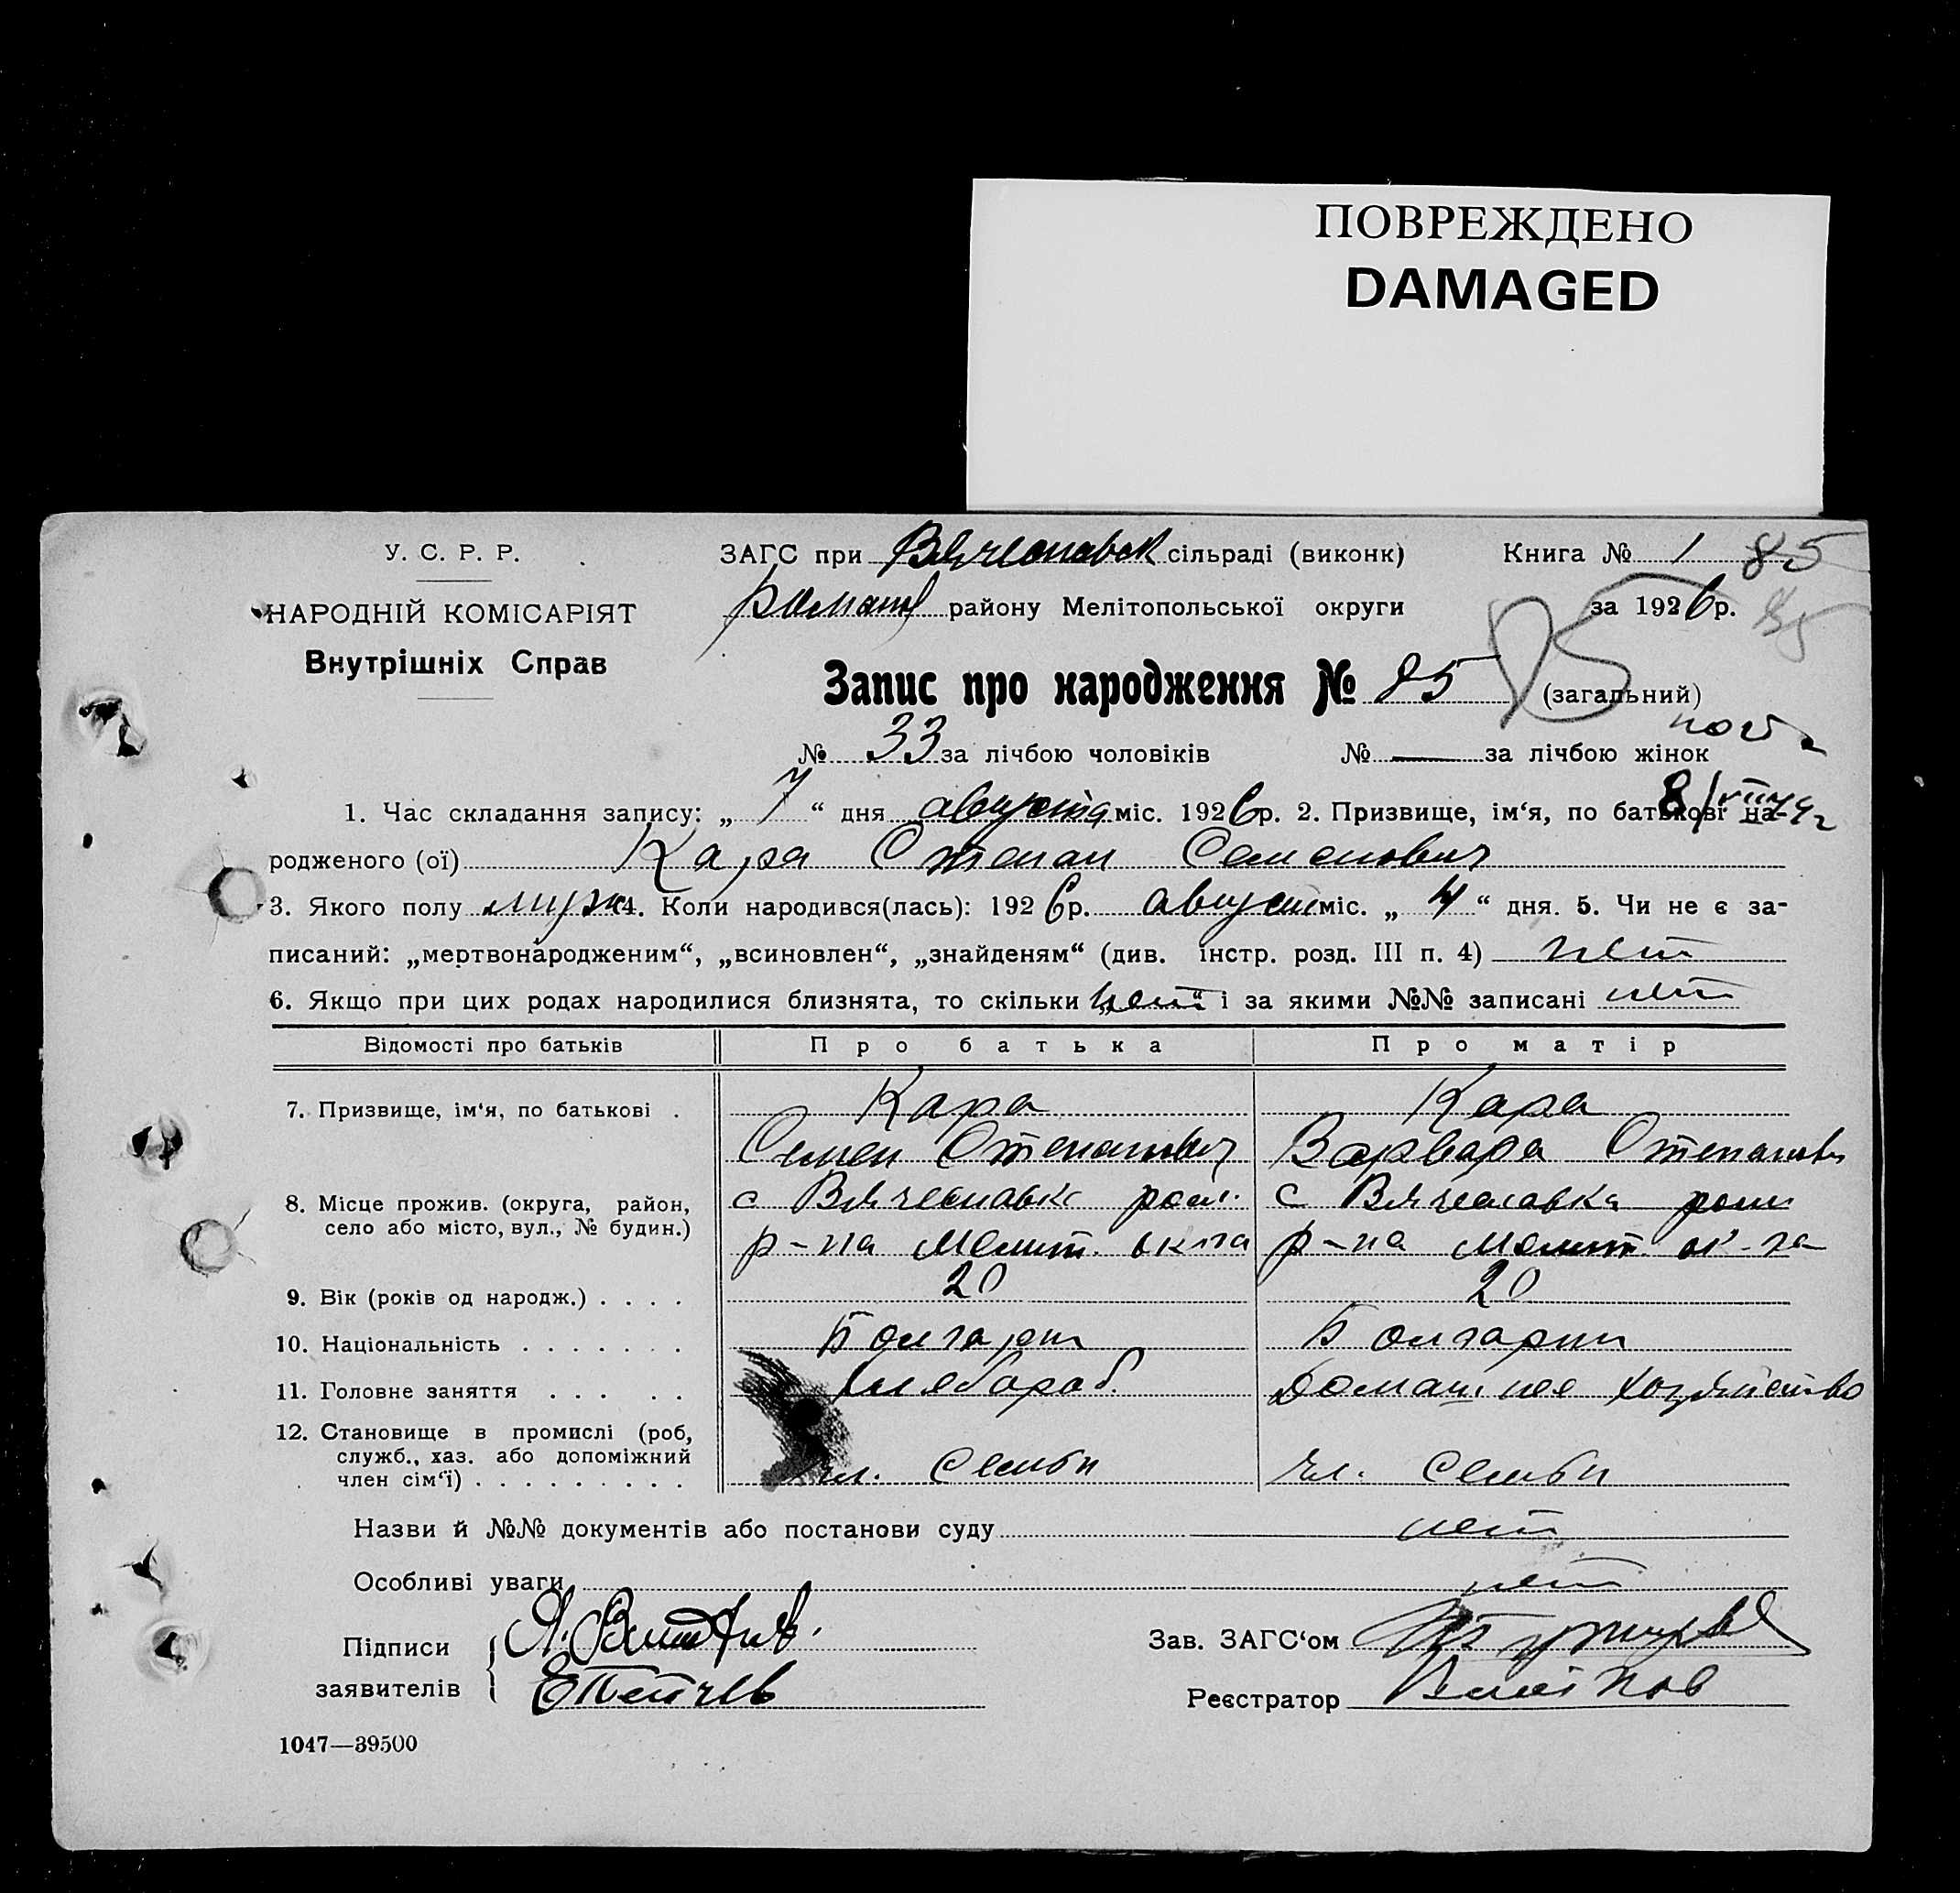 ПОВРЕЖДЕНО
DAMAGED
У. С. Р. Р.
НАРОДНІЙ КОМІСАРІЯТ
Внутрішніх Справ
ЗАГС при Вячеславск сільраді (виконк)
Книга № 1 85
району Мелітопольської округи
за 1926 р. 85
Запис про народження № 85 (загальний) 85
№ 33 за лічбою чоловіків № — за лічбою жінок
1. Час складання запису: „ 7 “ дня августа міс. 1926 р. 2. Призвище, ім‘я, по батькові на-
родженого (ої) Кара Степан Семенович
3. Якого полу муж 4. Коли народився(лась): 1926 р. август міс. „ 4 “ дня. 5. Чи не є за-
писаний: „мертвонародженим“, „всиновлен“, „знайденям“ (див. інстр. розд. III п. 4) нет
6. Якщо при цих родах народилися близнята, то скільки нет і за якими №№ записані нет
Відомості про батьків Про батька Про матір
7. Призвище, ім‘я, по батькові . Кара Кара
Семен Степанович Варвара Степанов
8. Місце прожив. (округа, район, с Вячеславка ром. с Вячеславка ром
село або місто, вул., № будин.) р-на Мелит. ок-га р-на Мелит. ок-га
9. Вік (років од народж.) . . . . 20 20
10. Національність . . . . . . . Болгарин Болгарин
11. Головне заняття . . . . . Хлебороб. Домашнее хозяйство
12. Становище в промислі (роб,
служб., хаз. або допоміжний
член сім‘ї) . . . . . . . . . чл. семьи чл. семьи
Назви й №№ документів або постанови суду нет
Особливі уваги нет
Підписи
заявителів
Зав. ЗАГС‘ом
Реєстратор
1047—39500